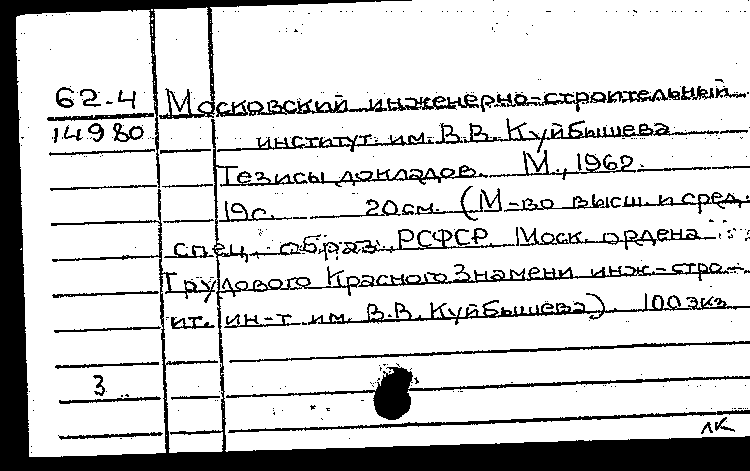 62-4 Московский инженерно-строительный
14980 институт им. В.В. Куйбышева
Тезисы докладов. М., 1960.
19с. 20см. (М-во высш. и сред.
спец. образ. РСФСР. Моск. ордена
Трудового Красного Знамени инж.-стро-
ит. ин-т им. В.В. Куйбышева). 100 экз
3
лк